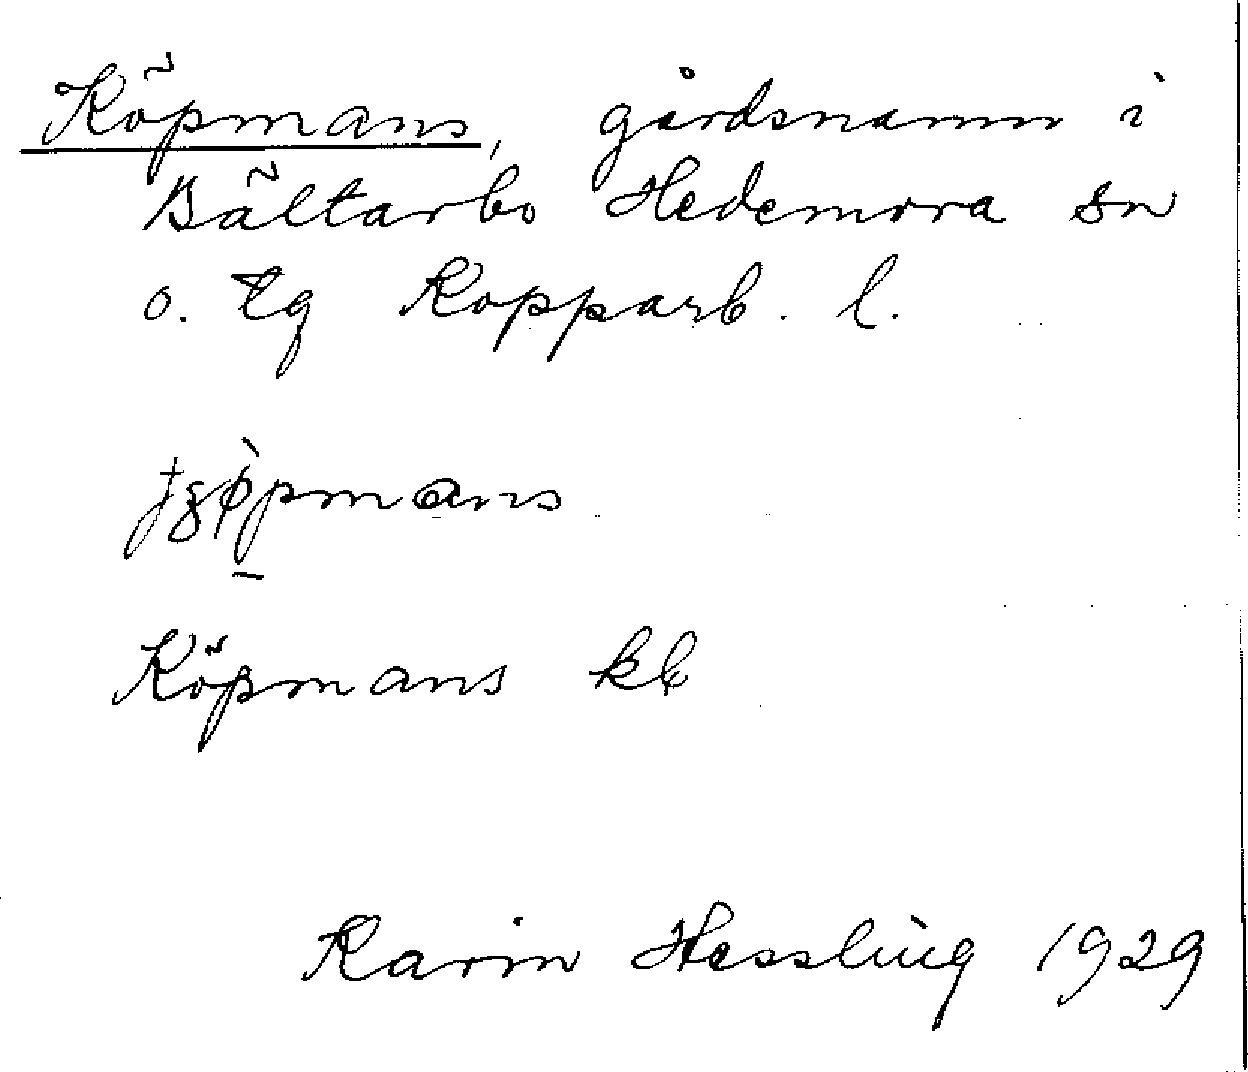 Köpmans, gårdsnamn i
Bältarbo Hedemora sn
o. tg Kopparb. l.
Köpmans kb
Karin Hessling 1929